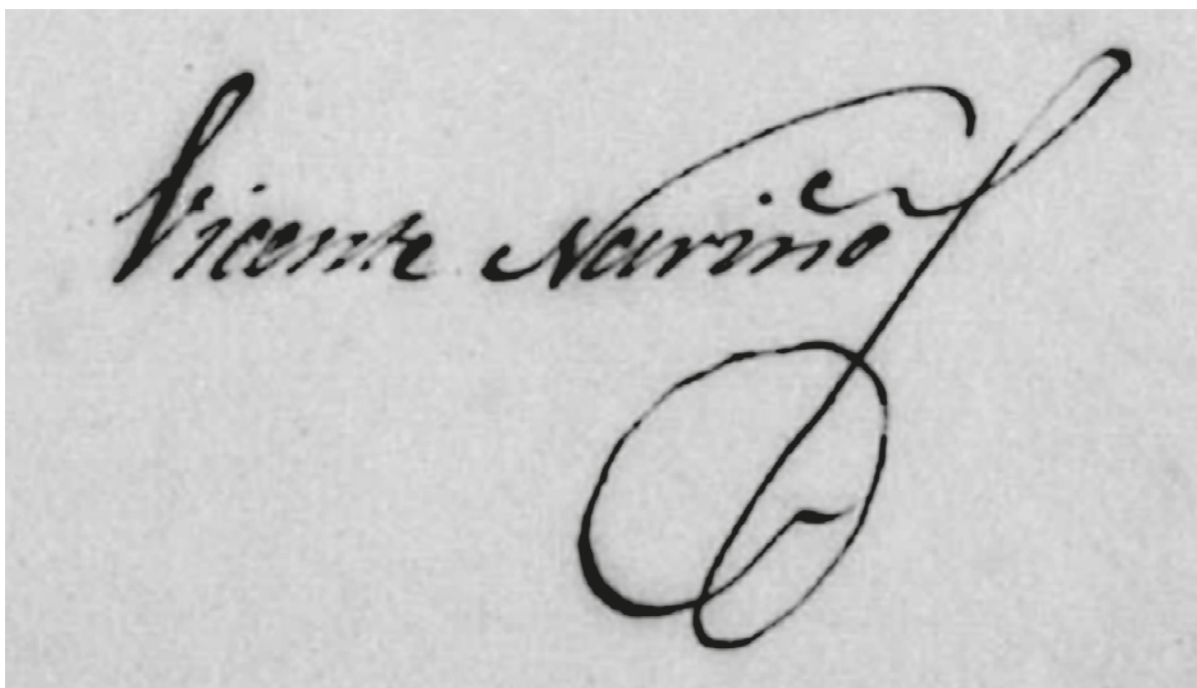 Vicente Nariño